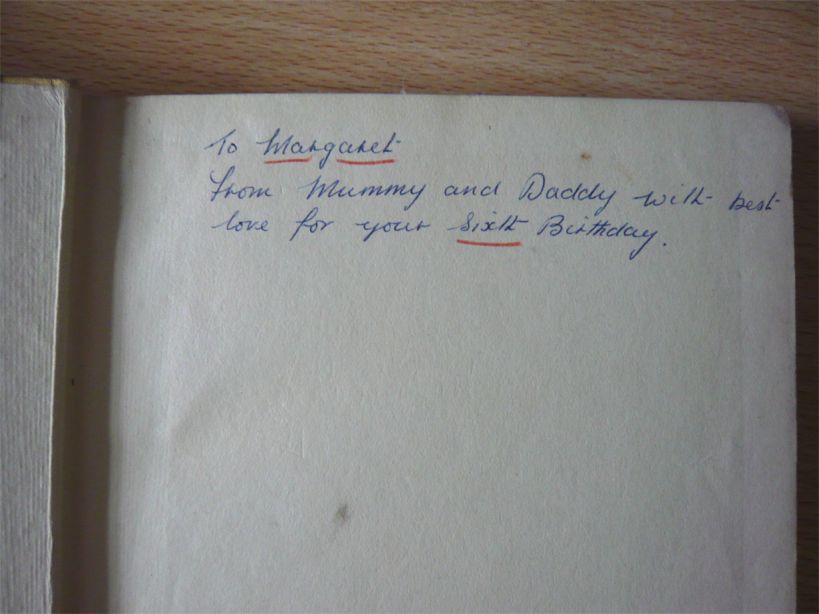 To Margaret
From Mummy and Daddy with best
love for your Sixth Birthday.